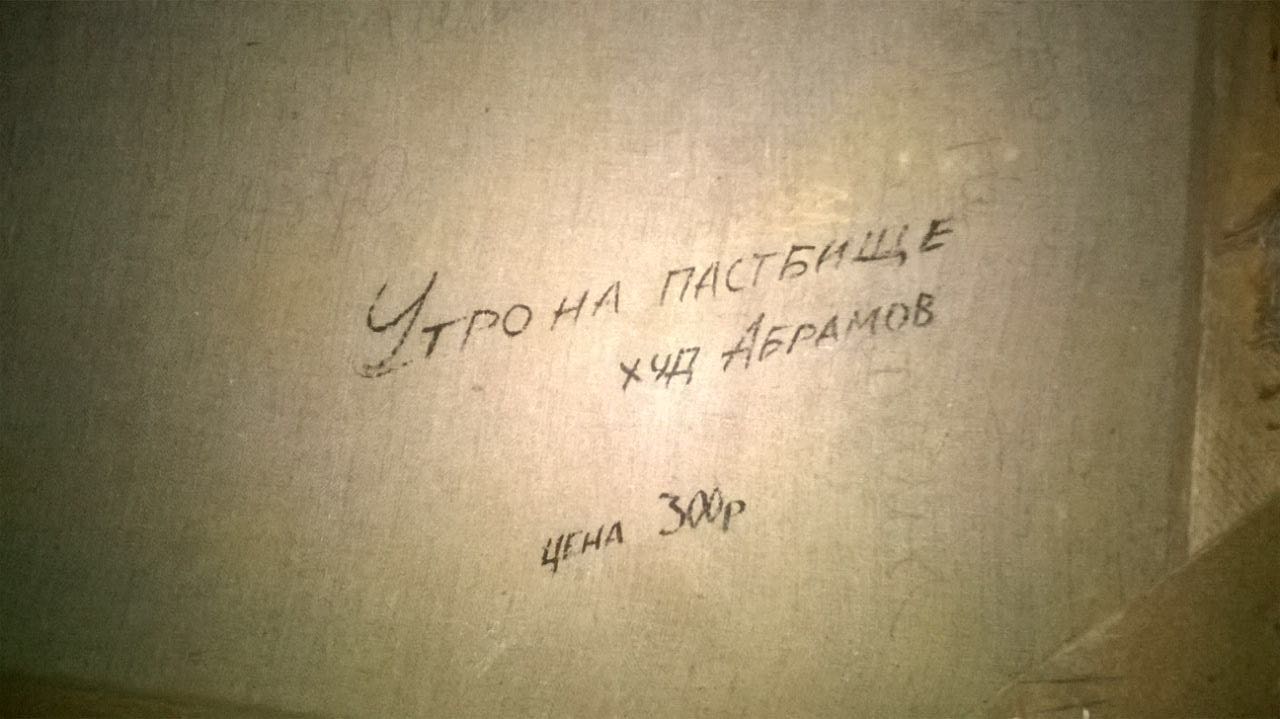 Утро на пастбище
худ Абрамов
цена 300р